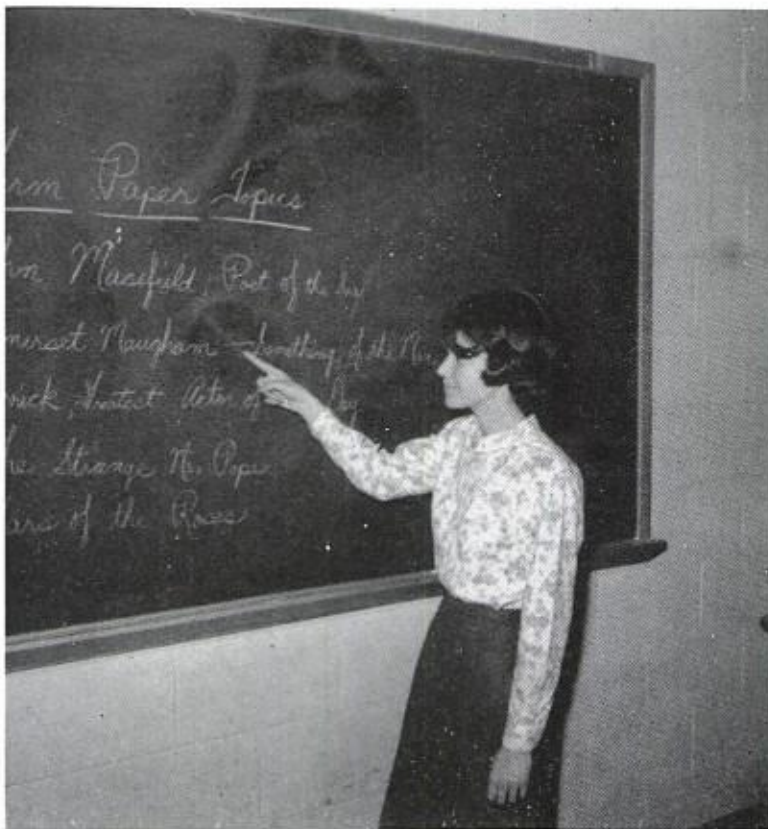 rm Paper Topics
hn Masefield, Poet of the Sea
merset Maugham — Handling of the
rick, Actor of Day
he Strange Mr. Pope
ars of the Roses